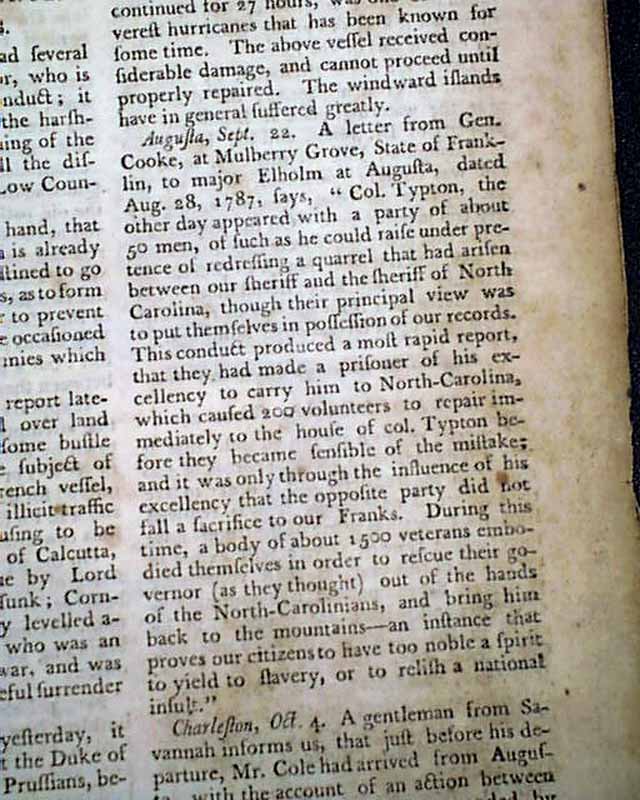 s.
ad several
or, who is
nduct; it
the harſh-
ing of the
ll the diſ-
Low Coun-
hand, that
is already
ſtined to go
s, as to form
r to prevent
e occaſioned
mies which
report late-
over land
ſome buſtle
e ſubject of
rench veſſel,
illicit traffic
uſing to be
of Calcutta,
e by Lord
ſunk; Corn-
y levelled a-
who was an
war, and was
eful ſurrender
yeſterday, it
t the Duke of
Pruſſians, be-
continued for 27 hours, was one
vereſt hurricanes that has been known for
ſome time. The above veſſel received con-
ſiderable damage, and cannot proceed until
properly repaired. The windward iſlands
have in general ſuffered greatly.
Auguſta, Sept. 22. A letter from Gen.
Cooke, at Mulberry Grove, State of Frank-
lin, to major Elholm at Auguſta, dated
Aug. 28, 1787, ſays, "Col. Typton, the
other day appeared with a party of about
50 men, of ſuch as he could raiſe under pre-
tence of redreſſing a quarrel that had ariſen
between our ſheriff aud the ſheriff of North
Carolina, though their principal view was
to put themſelves in poſſeſſion of our records.
This conduct produced a moſt rapid report,
that they had made a priſoner of his ex-
cellency to carry him to North-Carolina,
which cauſed 200 volunteers to repair im-
mediately to the houſe of col. Typton be-
fore they became ſenſible of the miſtake;
and it was only through the influence of his
excellency that the oppoſite party did not
fall a ſacrifice to our Franks. During this
time, a body of about 1500 veterans embo-
died themſelves in order to reſcue their go-
vernor (as they thought) out of the hands
of the North-Carolinians, and bring him
back to the mountains—an inſtance that
proves our citizens to have too noble a ſpirit
to yield to ſlavery, or to reliſh a national
inſult."
Charleſton, Oct. 4. A gentleman from Sa-
vannah informs us, that juſt before his de-
parture, Mr. Cole had arrived from Auguſ-
with the account of an action between